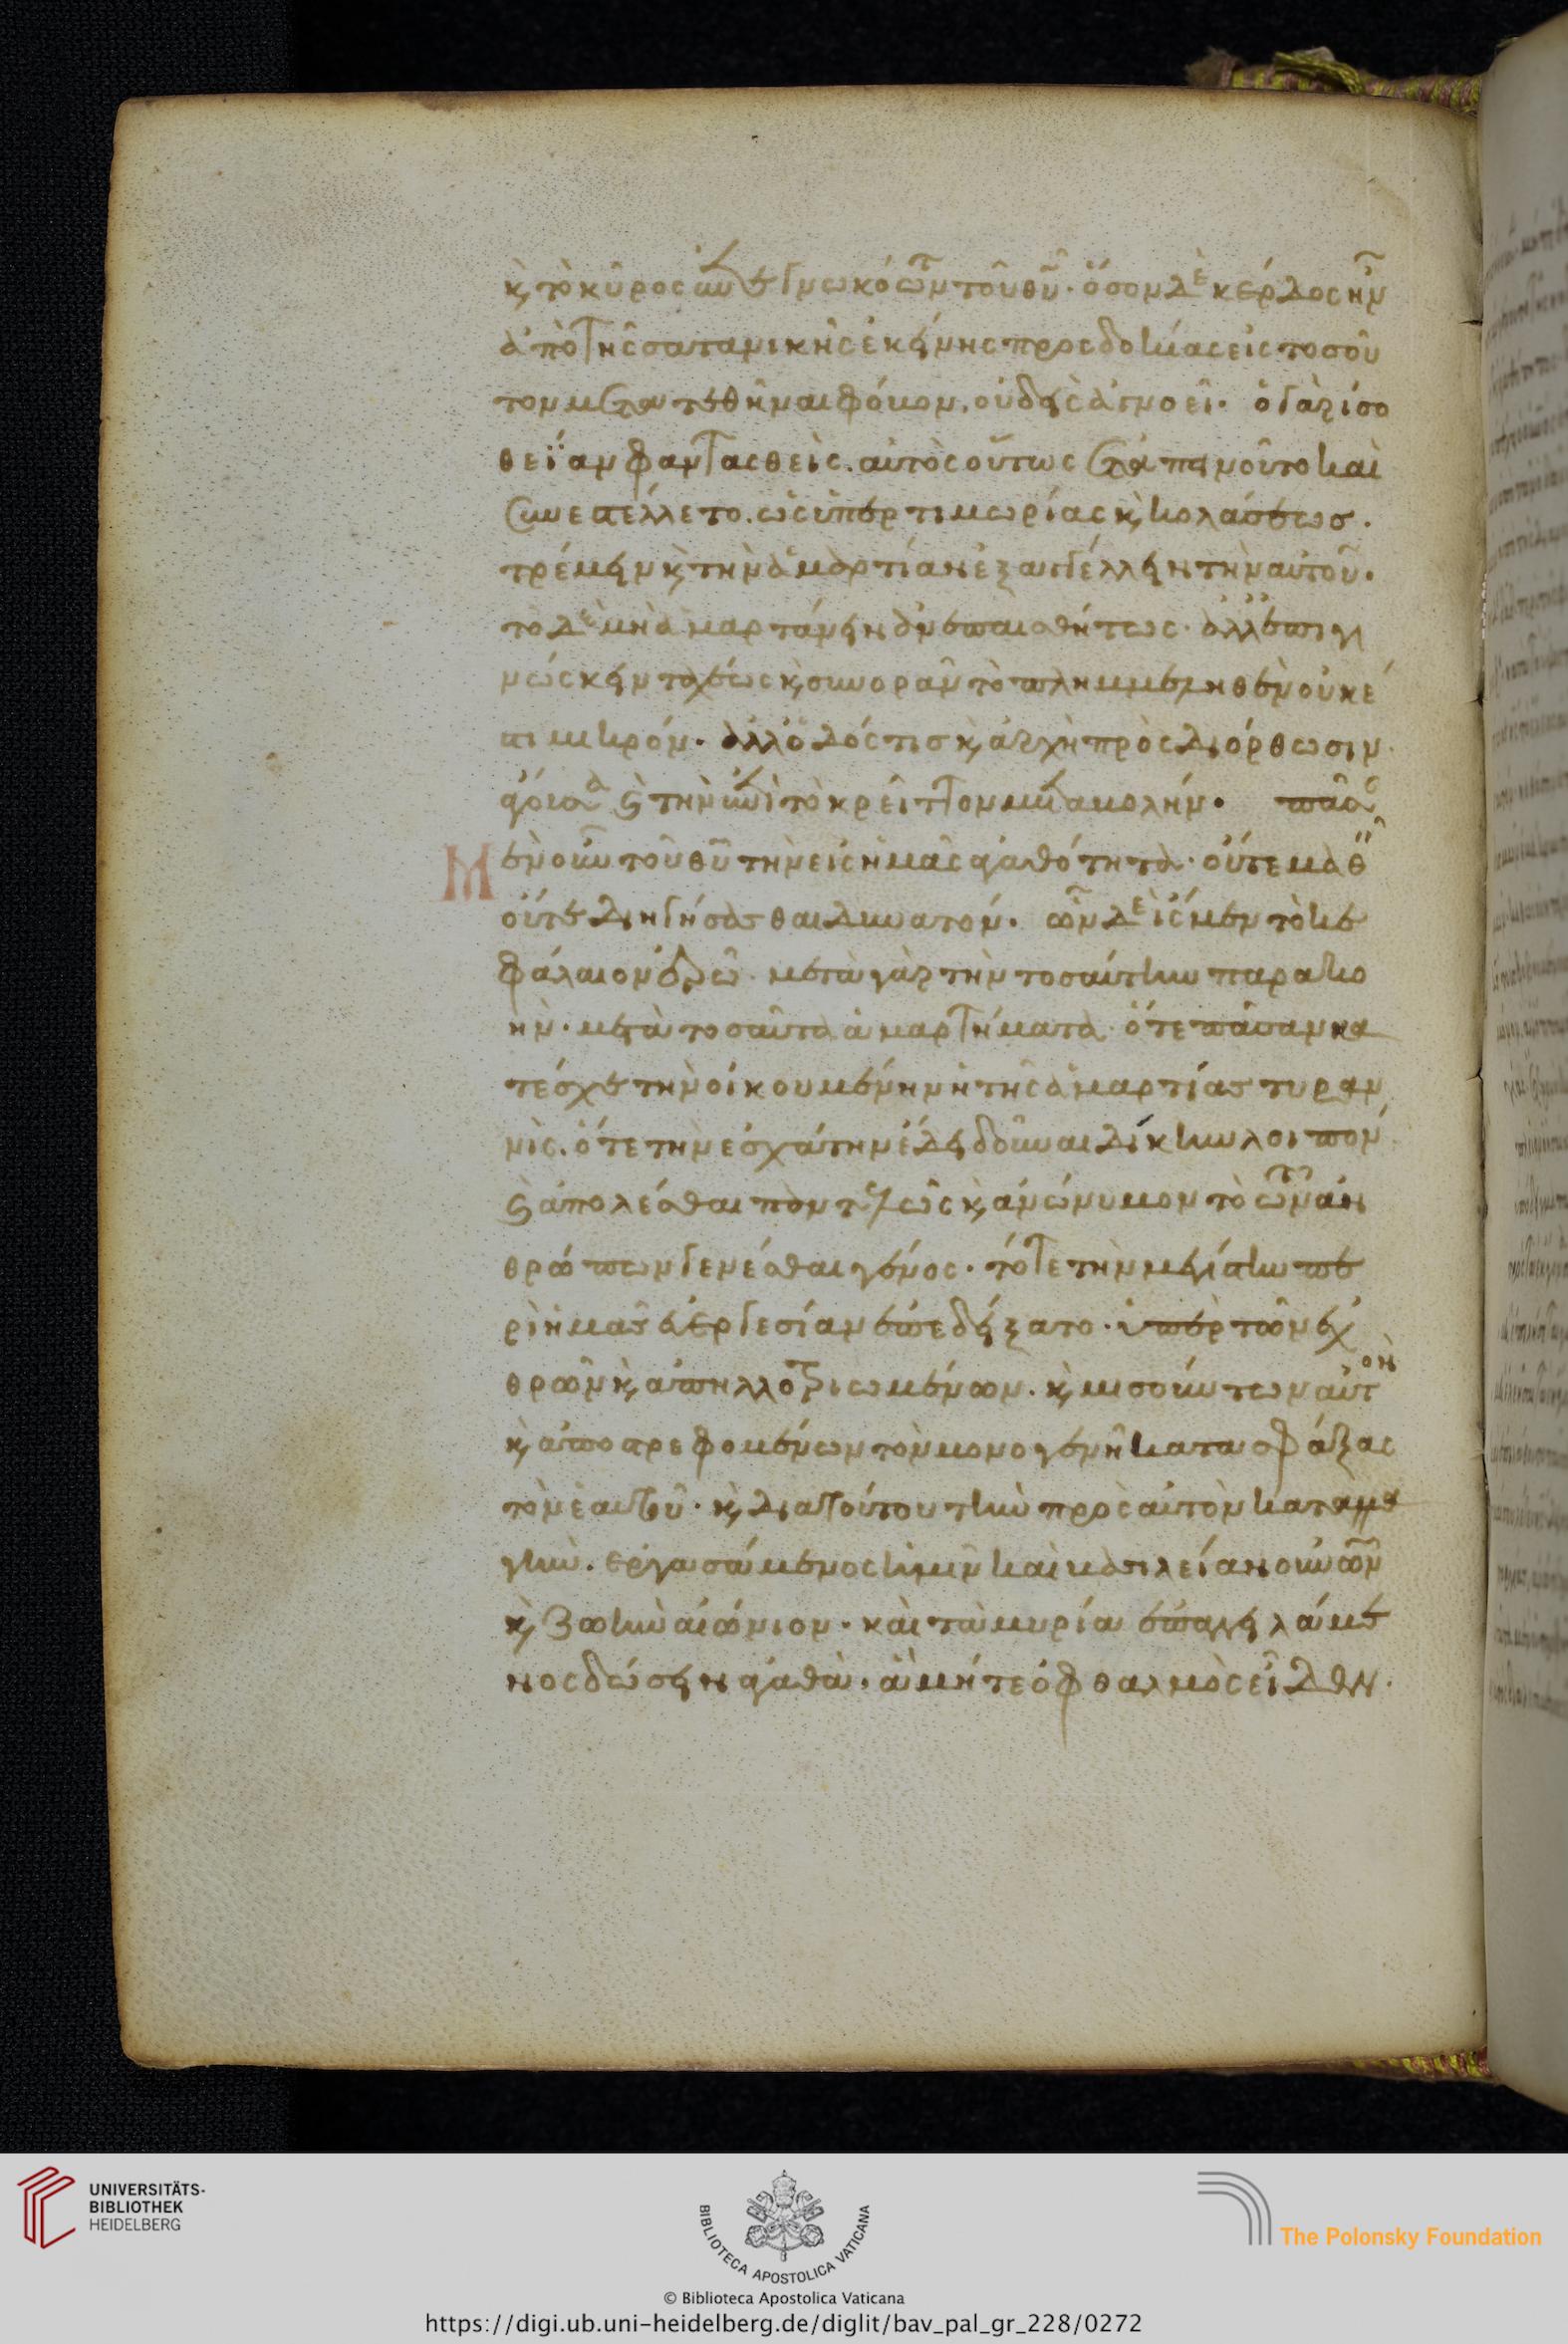 καὶ τὸ κῦρος ἐπεγνωκότων τοῦ θῦ· ὅσον δὲ κέρδος ἦν
ἀπὸ τῆς σατανικῆς ἐκείνης προσδοκίας εἰς τοσοῦ
τον μετατεθῆναι φόβον, οὐδεὶς ἀγνοεῖ· ὁ γὰρ ἰσο
θεΐαν φαντασθεὶς, αὐτὸς οὕτως ἐταπεινοῦτο καὶ
συνεστέλλετο, ὡς ὑπὲρ τιμωρίας καὶ κολάσεως·
τρέμειν καὶ τὴν ἁμαρτίαν ἐξαγγέλλειν τὴν αὐτοῦ.
τὸ δὲ μὴ ἁμαρτάνειν ἀνεπαισθήτως· ἀλλ' ἐπιγι
νώσκειν ταχέως καὶ συνορᾶν τὸ πλημμεληθὲν οὐκ ἔ
στι μικρόν· ἀλλ' ὁδός τις καὶ ἀρχὴ πρὸς διόρθωσιν·
ἄγουσα καὶ τὴν ἐπὶ τὸ κρεῖττον μεταβολήν. πᾶσαν
Μὲν οὖν τοῦ θῦ τὴν εἰς ἡμᾶς ἀγαθότητα· οὔτε μαθεῖν
οὔτε διηγήσασθαι δυνατόν. ὧν δὲ ἴσμεν τὸ κε
φάλαιον ἐρῶ· μετὰ γὰρ τὴν τοσαύτην παρακο
ὴν· μετὰ τοσαῦτα ἁμαρτήματα· ὅτε πᾶσαν κα
τέσχε τὴν οἰκουμένην ἡ τῆς ἁμαρτίας τυραν
νίς. ὅτε τὴν ἐσχάτην ἔδει δοῦναι δίκην λοιπόν·
καὶ ἀπολέσθαι παντελῶς καὶ ἀνώνυμον τὸ τῶν ἀν
θρώπων γενέσθαι γένος· τότε τὴν μεγίστην πε
ρὶ ἡμᾶς εὐεργεσίαν ἐπεδείξατο· ὑπὲρ τῶν ἐχ
θρῶν καὶ ἀπηλλοτριωμένων. καὶ μισούντων αὐτὸν
καὶ ἀποστρεφομένων τὸν μονογενῆ κατασφάξας
τὸν ἑαυτοῦ· καὶ διὰ τούτου τὴν πρὸς αὐτὸν καταλλα
γὴν· ἐργασάμενος ἡμῖν καὶ βασιλείαν οὐνῶν
καὶ ζωὴν αἰώνιον· καὶ τὰ μυρία ἐπαγγειλάμε
νος δώσειν ἀγαθὰ· ἃ μήτε ὀφθαλμὸς εἶδεν.
UNIVERSITÄTS-
BIBLIOTHEK
HEIDELBERG
BIBLIOTECA APOSTOLICA VATICANA
The Polonsky Foundation
© Biblioteca Apostolica Vaticana
https://digi.ub.uni-heidelberg.de/diglit/bav_pal_gr_228/0272